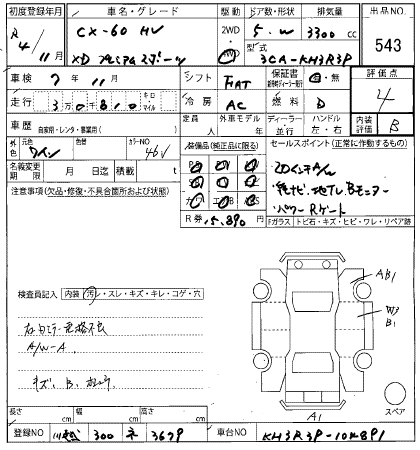 初度登録年月 車名・グレード 駆動 ドア数・形状 排気量 出品NO.
R4/11月 CX-60 HV 2WD・4WD 5.W 3300cc 543
XD プレミアムスポーツ 型式 3CA-KH3R3P
車検 7年11月 シフト FAT 保証書 有・無 評価点
走行 3万0千810 キロ マイル 冷房 AC 燃料 D 4
車歴 自家用・レンタ・事業用( ) 定員 人 外車モデル 年 ディーラー・並行 ハンドル 左・右 内装評価 B
外色 元色 ワイン 色替 カラーNO 46V 装備品(純正品に限る) セールスポイント(正常に作動するもの)
名義変更期限 月 日迄 積載 t 20インチAW
注意事項(欠品・修復・不具合箇所および状態) 純ナビ、地デジ、Bモニター
パワーRゲート
R券 15,890円 Fガラス トビ石・キズ・ヒビ・ワレ・リペア跡
検査員記入 内装 汚レ・スレ・キズ・キレ・コゲ・穴
右ミラー格納不良
A/W-A
キズ、B、
AB1
W3
B1
A1
スペア
長さ cm 幅 cm 高さ cm
登録NO 川越 300 ネ 3679 車台NO KH3R3P-104891